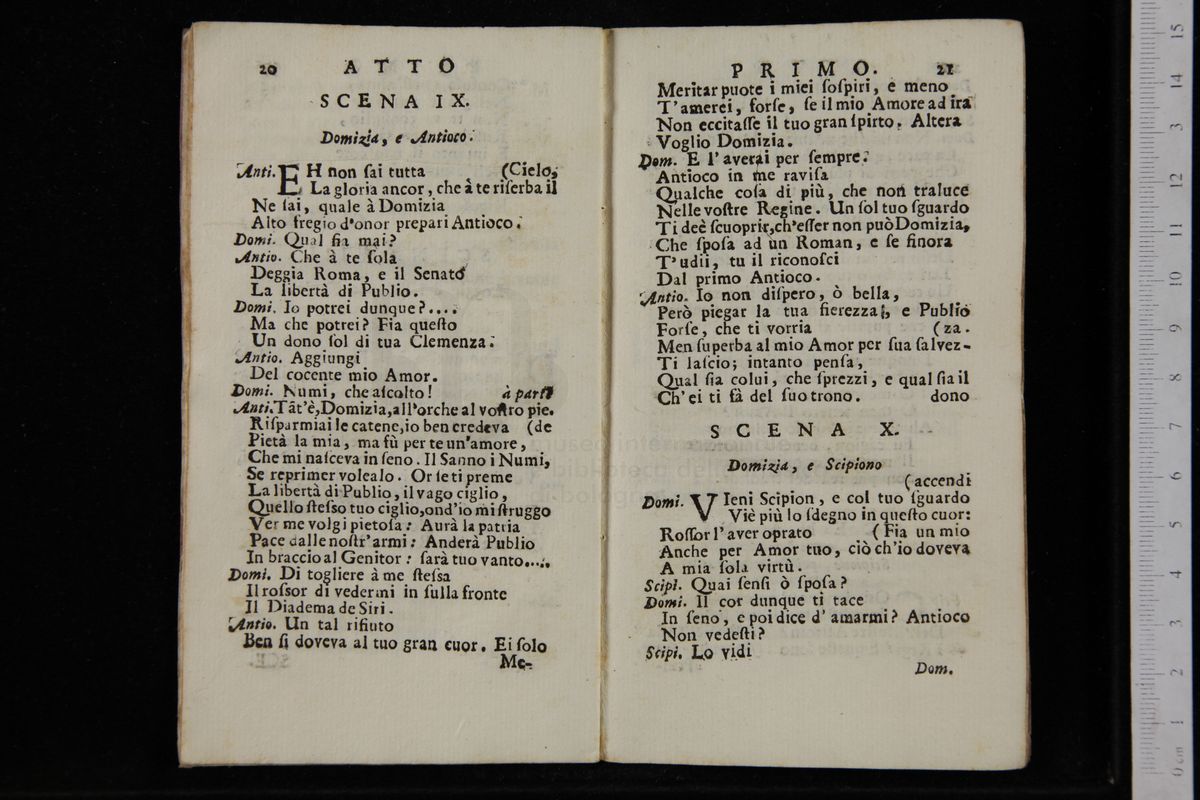 20 ATTO
SCENA IX.
Domizia, e Antioco.
Anti. EH non ſai tutta (Cielo,
La gloria ancor, che à te riſerba il
Ne ſai, quale à Domizia
Alto fregio d'onor prepari Antioco.
Domi. Qual fia mai?
Antio. Che à te ſola
Deggia Roma, e il Senato
La libertà di Publio.
Domi. Io potrei dunque?....
Ma che potrei? Fia queſto
Un dono ſol di tua Clemenza.
Antio. Aggiungi
Del cocente mio Amor.
Domi. Numi, che aſcolto! à parte
Anti. Tãt'è, Domizia, all'orche al voſtro pie.
Riſparmiai le catene, io ben credeva (de
Pietà la mia, ma fù per te un'amore,
Che mi naſceva in ſeno. Il Sanno i Numi,
Se reprimer volealo. Or ſe ti preme
La libertà di Publio, il vago ciglio,
Quello ſteſso tuo ciglio, ond'io mi ſtruggo
Ver me volgi pietoſa: Aurà la patria
Pace dalle noſtr'armi: Anderà Publio
In braccio al Genitor: ſarà tuo vanto....
Domi. Di togliere à me ſteſsa
Il roſsor di vedermi in ſulla fronte
Il Diadema de Siri.
Antio. Un tal rifiuto
Ben ſi doveva al tuo gran cuor. Ei ſolo
Me-
PRIMO. 21
Meritar puote i miei ſoſpiri, e meno
T'amerei, forſe, ſe il mio Amore ad ira
Non eccitaſſe il tuo gran ſpirto. Altera
Voglio Domizia.
Dom. E l'averai per ſempre.
Antioco in me raviſa
Qualche coſa di più, che non traluce
Nelle voſtre Regine. Un ſol tuo ſguardo
Ti deè ſcuoprir, ch'eſſer non può Domizia,
Che ſpoſa ad un Roman, e ſe finora
T'udii, tu il riconoſci
Dal primo Antioco.
Antio. Io non diſpero, ò bella,
Però piegar la tua fierezza, e Publio
Forſe, che ti vorria (za.
Men ſuperba al mio Amor per ſua ſalvez-
Ti laſcio; intanto penſa,
Qual ſia colui, che ſprezzi, e qual ſia il
Ch'ei ti fà del ſuo trono. dono
SCENA X.
Domizia, e Scipiono
(accendi
Domi. VIeni Scipion, e col tuo ſguardo
Viè più lo ſdegno in queſto cuor:
Roſſor l'aver oprato (Fia un mio
Anche per Amor tuo, ciò ch'io doveva
A mia ſola virtù.
Scipi. Quai ſenſi ò ſpoſa?
Domi. Il cor dunque ti tace
In ſeno, e poi dice d'amarmi? Antioco
Non vedeſti?
Scipi. Lo vidi
Dom.